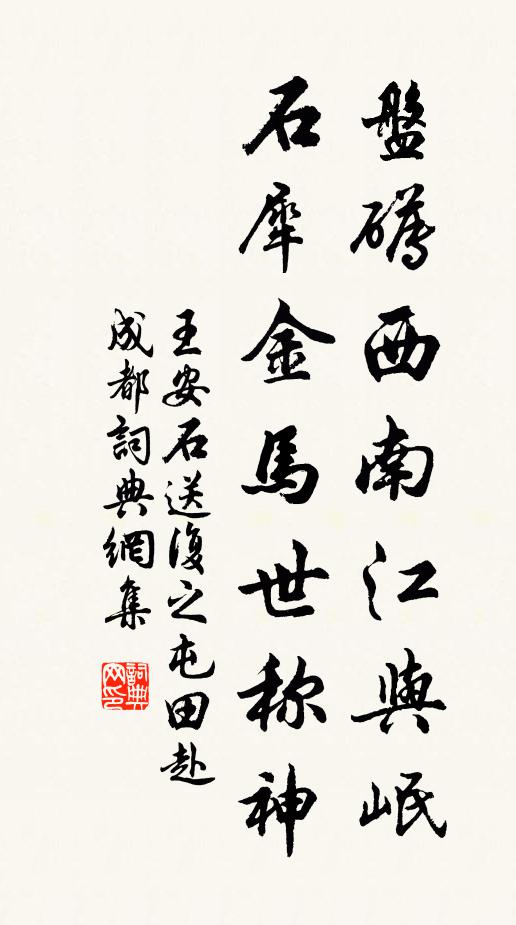 盤礴西南江與岷
石犀金馬世称神
王安石送復之屯田赴
成都詞典網集
詞典網印